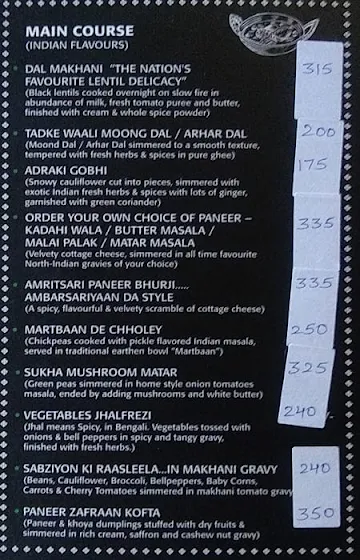 MAIN COURSE
(INDIAN FLAVOURS)
DAL MAKHANI "THE NATION'S 315
FAVOURITE LENTIL DELICACY"
(Black lentils cooked overnight on slow fire in
abundance of milk, fresh tomato puree and butter,
finished with cream & whole spice powder)
TADKE WAALI MOONG DAL / ARHAR DAL 200
(Moond Dal / Arhar Dal simmered to a smooth texture,
tempered with fresh herbs & spices in pure ghee)
ADRAKI GOBHI 175
(Snowy cauliflower cut into pieces, simmered with
exotic Indian fresh herbs & spices with lots of ginger,
garnished with green coriander)
ORDER YOUR OWN CHOICE OF PANEER – 335
KADAHI WALA / BUTTER MASALA /
MALAI PALAK / MATAR MASALA
(Velvety cottage cheese, simmered in all time favourite
North-Indian gravies of your choice)
AMRITSARI PANEER BHURJI..... 335
AMBARSARIYAAN DA STYLE
(A spicy, flavourful & velvety scramble of cottage cheese)
MARTBAAN DE CHHOLEY 250
(Chickpeas cooked with pickle flavored Indian masala,
served in traditional earthen bowl "Martbaan")
SUKHA MUSHROOM MATAR 325
(Green peas simmered in home style onion tomatoes
masala, ended by adding mushrooms and white butter)
VEGETABLES JHALFREZI 240
(Jhal means Spicy, in Bengali. Vegetables tossed with
onions & bell peppers in spicy and tangy gravy,
finished with fresh herbs.)
SABZIYON KI RAASLEELA...IN MAKHANI GRAVY 240
(Beans, Cauliflower, Broccoli, Bellpeppers, Baby Corns,
Carrots & Cherry Tomatoes simmered in makhani tomato gravy
PANEER ZAFRAAN KOFTA 350
(Paneer & khoya dumplings stuffed with dry fruits &
simmered in rich cream, saffron and cashew nut gravy)